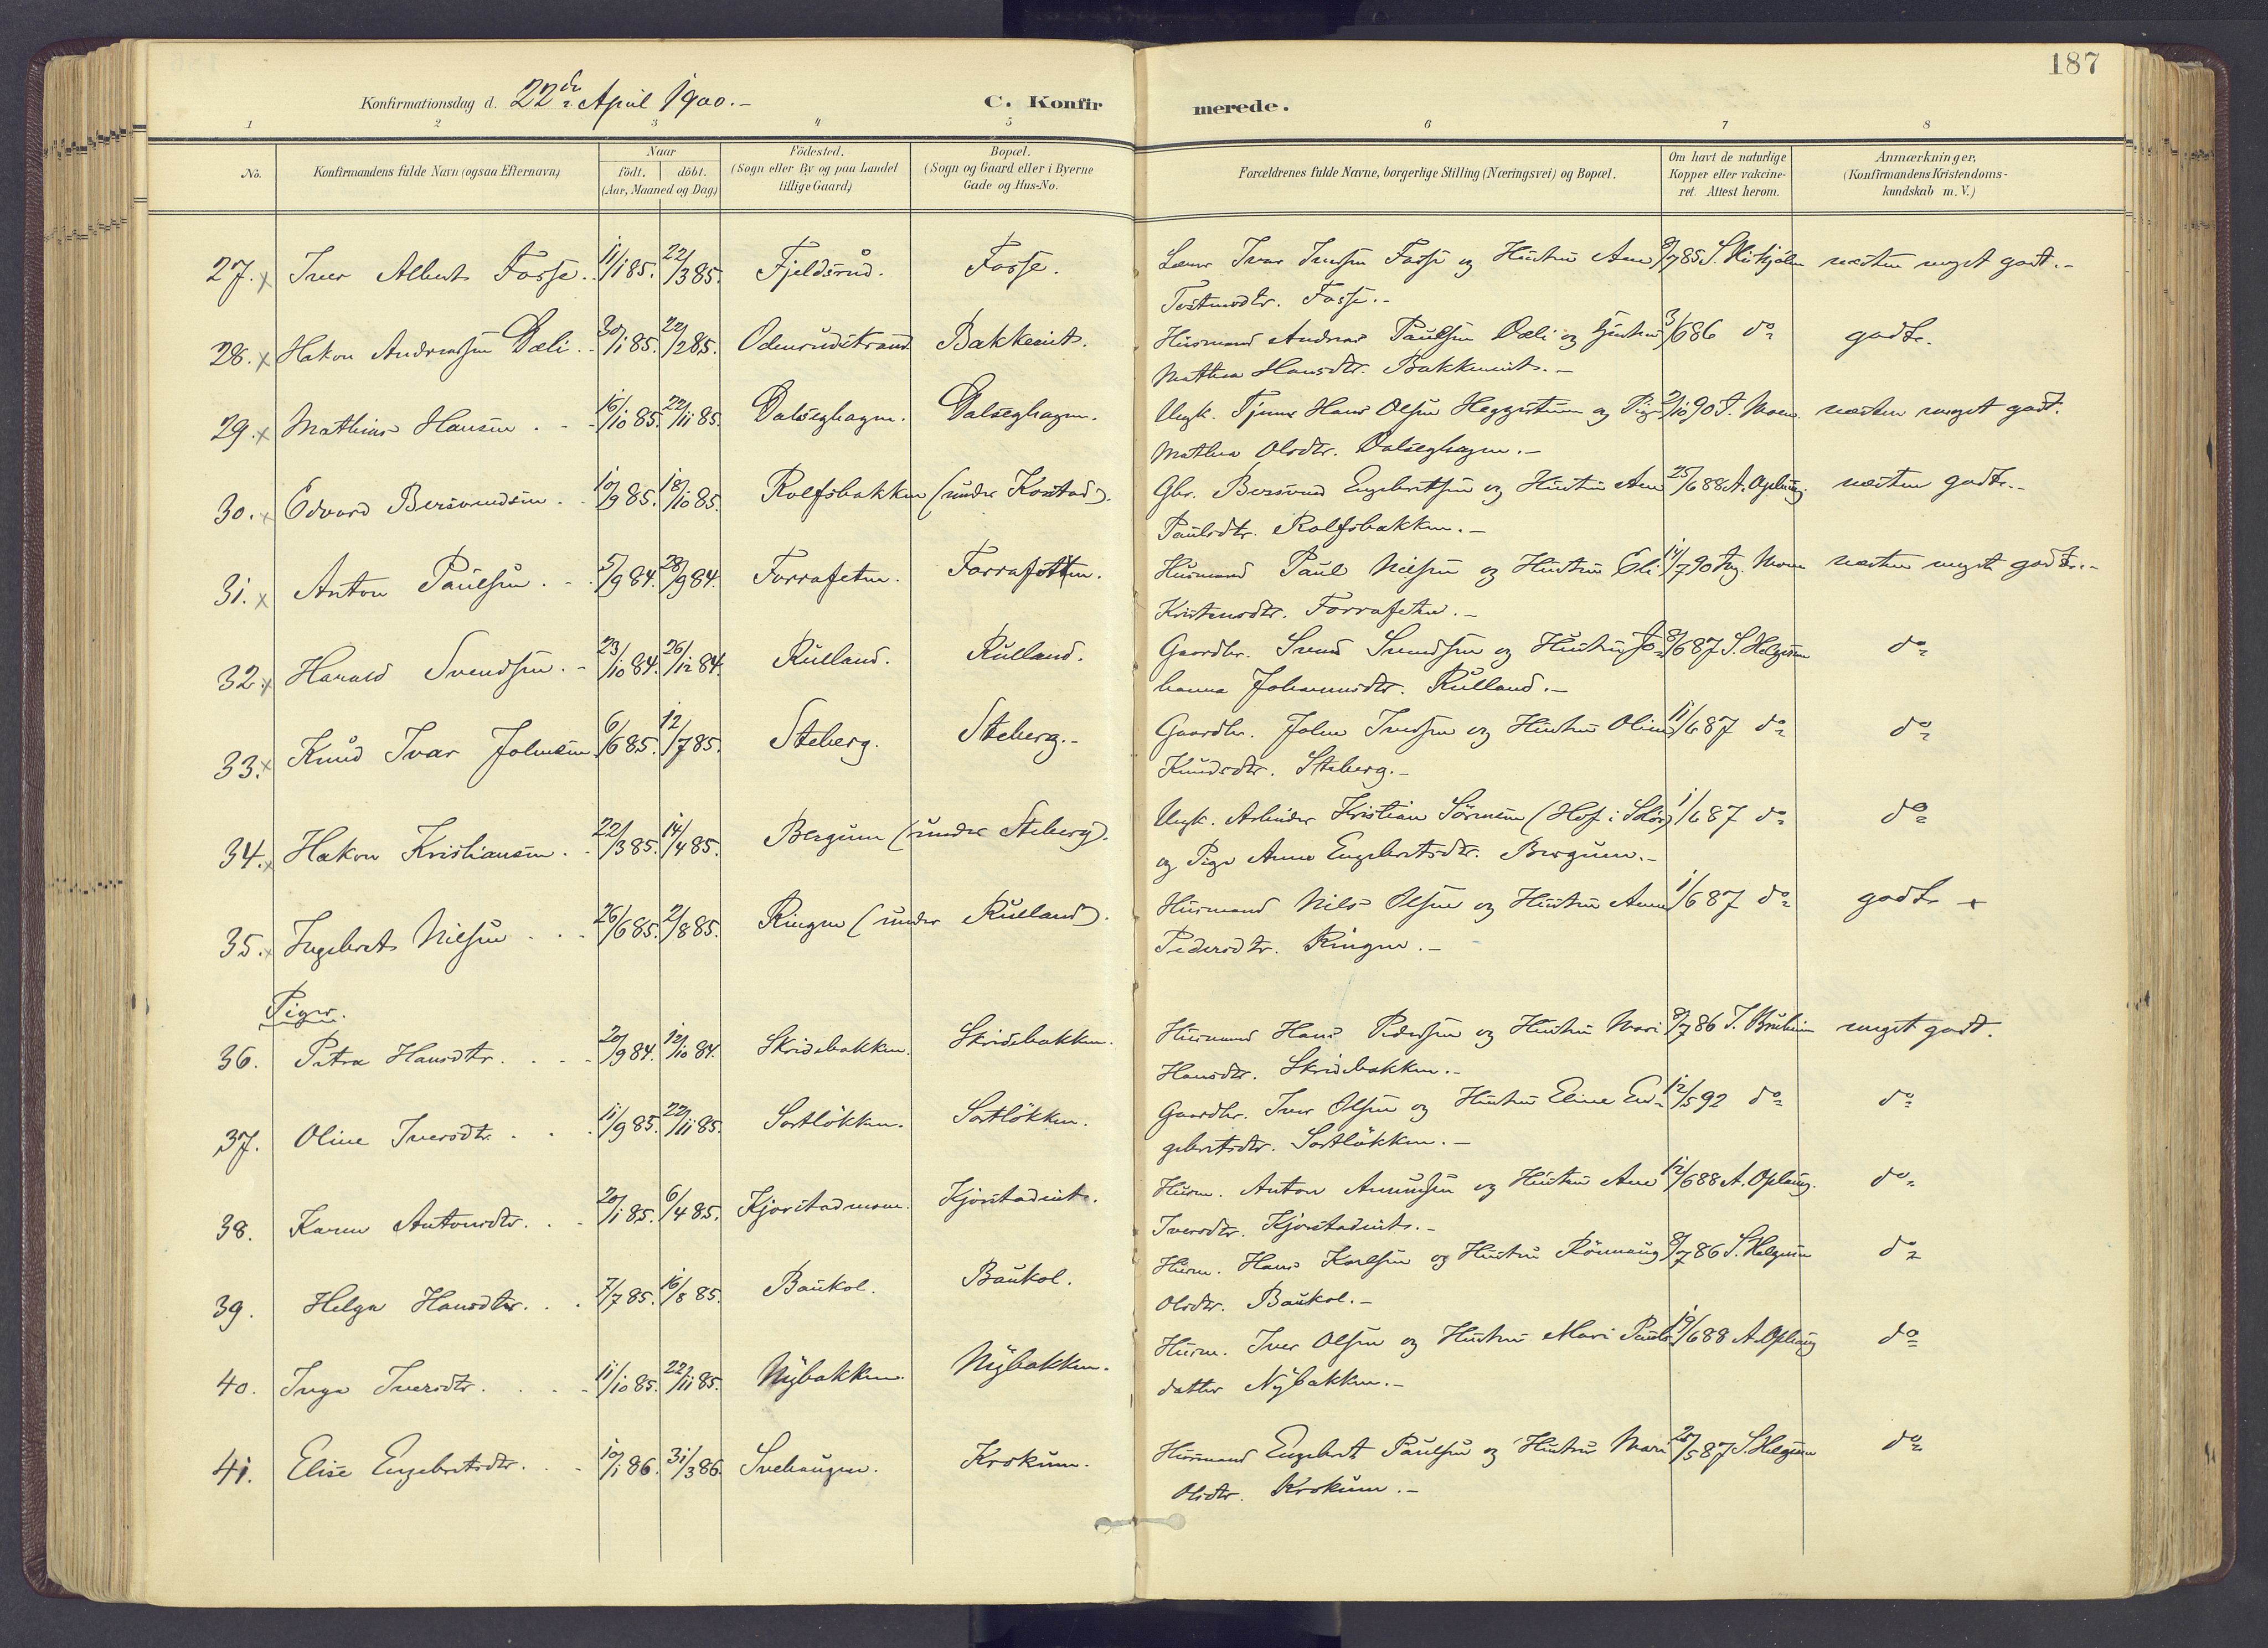 187
Konfirmationsdag d. 22de April 1900.-
C. Konfirmerede.
1 2 3 4 5 6 7 8
No. Konfirmandens fulde Navn (ogsaa Efternavn) Naar födt. döbt. (Aar, Maaned og Dag) Födested. (Sogn eller By og paa Landet tillige Gaard) Bopæl. (Sogn og Gaard eller i Byerne Gade og Hus-No. Forældrenes fulde Navne, borgerlige Stilling (Næringsvei) og Bopæl. Om havt de naturlige Kopper eller vakcineret. Attest herom. Anmærkninger, (Konfirmandens Kristendomskundskab m. V.)
27. x Iver Albert Fosse. 11/1 85. 22/3 85. Fjeldsrud. Fosse. Iver Iversen Fosse og Hustru Ane 9/7 85 næsten meget godt.-
Fosse.-
28. x Hakon Andreassen Dæli. 30/1 85. 22/2 85. Odnesrudstrand Bakkeeiet. Husmand Andreas Paulsen Dæli og Hustru 3/6 86 do godt.
Mathea Hansdtr. Bakkeeiet.-
29. x Mathias Hansen. 15/10 85. 22/11 85. Dalseghagen. Dalseghagen. Ungk. Tjener Hans Olsen Heggestuen og Pige 2/10 90 T. Moen næsten meget godt.
Mathea Olsdtr. Dalseghagen.-
30. x Edvard Bersvendsen. 10/9 85. 18/10 85. Rolfsbakken (under Konstad). Gbr. Bersvend Engebretsen og Hustru Ane 25/6 88 A. Oplung. næsten godt.-
Paulsdtr. Rolfsbakken.-
31. x Anton Paulsen. 5/9 84. 28/9 84. Forrafeten. Forrafeten. Husmand Paul Nilsen og Hustru Eli 14/7 90 Moen næsten meget godt.-
Kristensdtr. Forrafeten.-
32. x Harald Svendsen.- 23/10 84. 26/12 84. Rulland. Rulland. Gaardbr. Svend Svendsen og Hustru Jo- 8/6 87 S. Helgesen do
hanna Johannesdtr. Rulland.-
33. x Knud Ivar Johnsen 6/6 85. 12/7 85. Steberg. Steberg.- Gaardbr. John Iversen og Hustru Oline 11/6 87 do do
Knudsdtr. Steberg.-
34. x Hakon Kristiansen. 22/3 85. 14/4 85. Bergum (under Steberg). Ungk. Arbeider Kristian Sörensen (Hof i Solör) 1/6 87 do do
og Pige Anne Engebretsdtr. Bergum.-
35. x Ingebret Nilsen 26/6 85. 2/8 85. Ringen (under Rulland). Husmand Nils Olsen og Hustru Anne 1/6 87 do godt +
Pedersdtr. Ringen.-
Piger.
36. Petra Hansdtr. 20/9 84. 12/10 84. Skridebakken. Skridebakken. Husmand Hans Pedersen og Hustru Mari 9/7 86 meget godt.
Hansdtr. Skridebakken.-
37. Oline Iversdtr. 11/9 85. 22/11 85. Sortlökken. Sortlökken. Gaardbr. Iver Olsen og Hustru Eline En- 12/5 92 do do
gebretsdtr. Sortlökken.-
38. Karen Antonsdtr. 20/1 85. 6/4 85. Kjorstadmoen. Kjorstadeiet. Husm. Anton Amundsen og Hustru Ane 12/6 88 A. Oplung. do
Iversdtr. Kjorstadeiet.-
39. Helga Hansdtr. 7/7 85. 16/8 85. Baukol. Baukol. Husm. Hans Karlsen og Hustru Rönnaug 8/7 86 S. Helgesen do
Olsdtr. Baukol.-
40. Inga Iversdtr. 11/10 85. 22/11 85. Nybakken. Nybakken. Husm. Iver Olsen og Hustru Mari Pauls- 19/6 88 A. Oplung do
datter Nybakken.-
41. Elise Engebretsdtr. 10/1 86. 31/3 86. Svehaugen. Krokum. Husmand Engebret Paulsen og Hustru Mari 25/5 87 S. Helgesen do
Olsdtr. Krokum.-